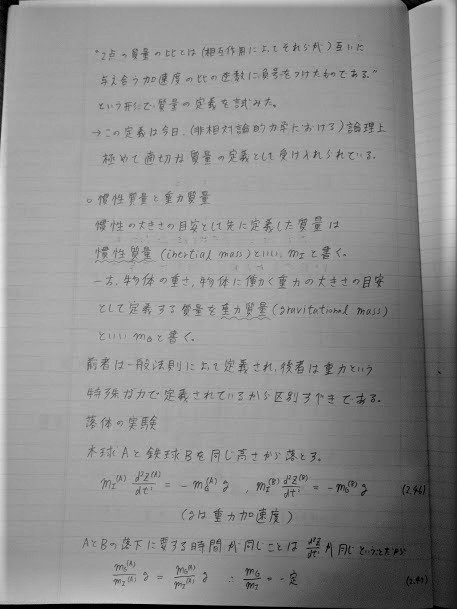 "2点の質量の比とは(相互作用によってそれらが)互いに
与え合う加速度の比の逆数に負号をつけたものである"
という形で質量の定義を試みた。
→この定義は今日、(非相対論的力学における)論理上
極めて適切な質量の定義として受け入れられている。
○慣性質量と重力質量
慣性の大きさの目安として先に定義した質量は
慣性質量(inertial mass)といい、mIと書く。
一方、物体の重さ、物体に働く重力の大きさの目安
として定義する質量を重力質量(gravitational mass)
といいmGと書く。
前者は一般法則によって定義され、後者は重力という
特殊な力で定義されているから区別すべきである。
落体の実験
木球Aと鉄球Bを同じ高さから落とす。
mI^(A) d²z^(A)/dt² = -mG^(A) g , mI^(B) d²z^(B)/dt² = -mG^(B) g (2.46)
(gは重力加速度)
AとBの落下に要する時間が同じことは d²z/dt² が同じということだから
mG^(A)/mI^(A) g = mG^(B)/mI^(B) g ∴ mG/mI = 一定